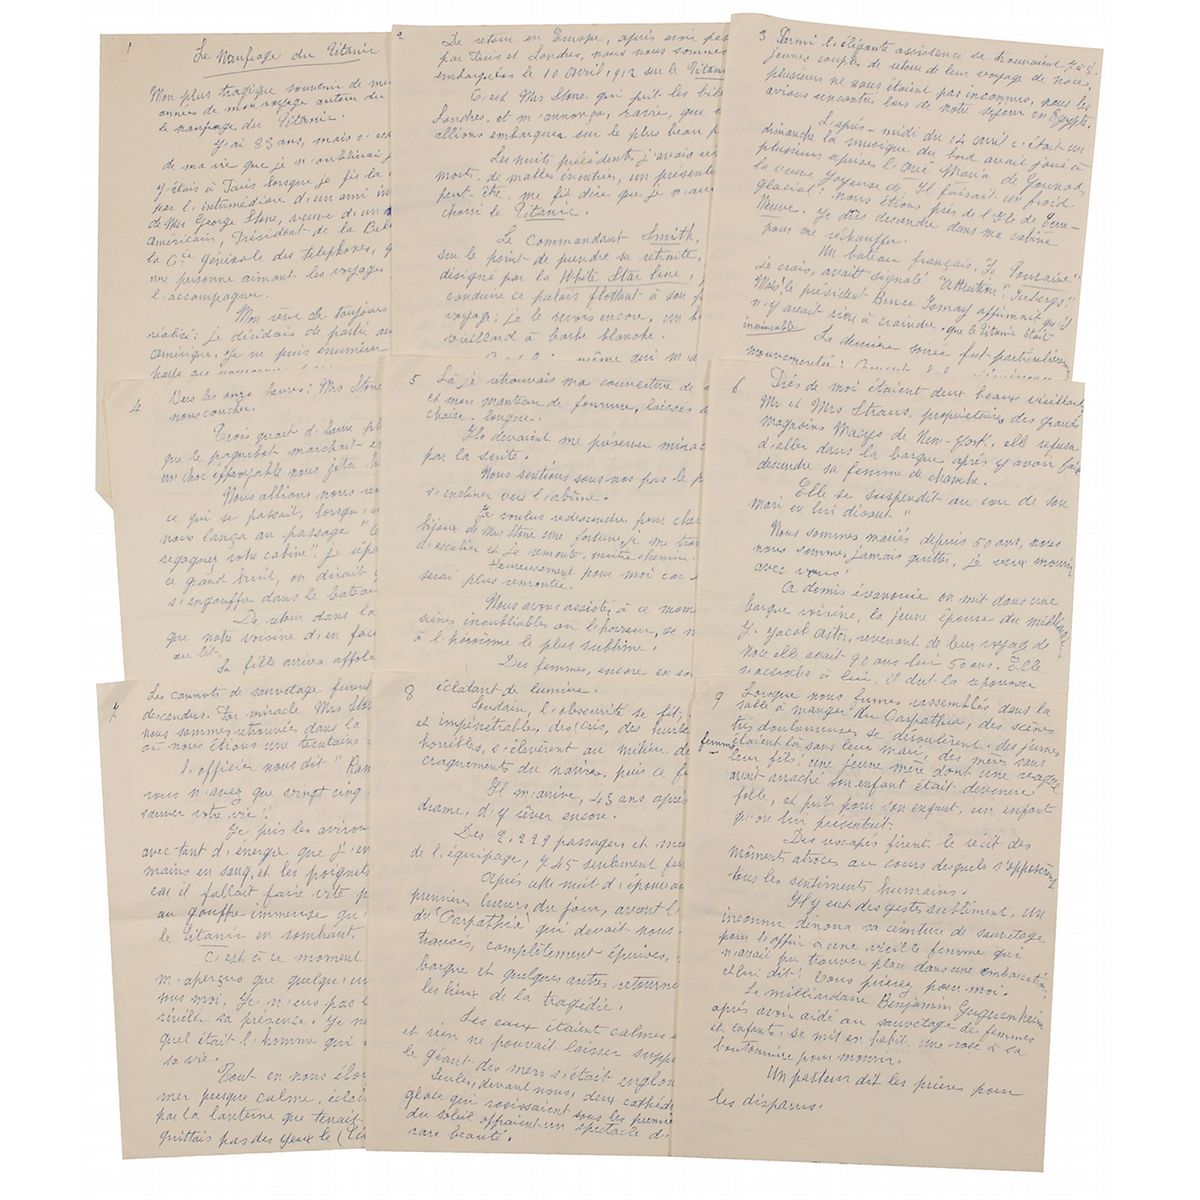 1
Le Naufrage du Titanic
Mon plus tragique souvenir de mes
années de mon voyage autour du
le naufrage du Titanic.
J'ai 83 ans, mais c'est
de ma vie que je n'oublierai j
J'étais à Paris lorsque je fis la
par l'intermédiaire d'un ami in
de Mrs George Stone, veuve d'un
américain, Président de la Bel
la Cie générale des téléphones, q
une personne aimant les voyages
l'accompagner.
Mon rêve de toujours
réalisé: je décidais de partir au
amérique. Je ne puis énumérer
2
De retour en Europe, après avoir pas
par Paris et Londres, nous nous sommes
embarquées le 10 avril 1912 sur le Titanic
C'est Mrs Stone qui prit les bil
Londres, et m'annonça, ravie, que n
allions embarquer sur le plus beau p
Les nuits précédents, j'avais
mort, de malles éventrées, un présente
peut-être me fit dire que je n'au
choisi le Titanic.
Le Commandant Smith,
sur le point de prendre sa retraite,
désigné par la White Star Line,
conduire ce palais flottant à son p
voyage; je le revois encore, un b
vieillard à barbe blanche.
même qui m'a
3 Parmi l'élégante assistance se trouvaient 7 à 8
jeunes couples de retour de leur voyage de noces,
plusieurs ne nous étaient pas inconnus, nous les
avions rencontrés lors de notre séjour en Egypte.
L'après-midi du 14 avril c'était un
dimanche la musique du bord avait joué à
plusieurs reprises l'Avé Maria de Gounod,
la veuve Joyeuse de. Il faisait un froid
glacial: nous étions près de l'Ile de Terre-
Neuve. Je dûs descendre dans ma cabine
pour me réchauffer.
Un bateau français, "La Touraine"
je crois, avait signalé "Attention", "Icebergs"
Mais le président Bruce Ismay affirmait qu'il
n'y avait rien à craindre, que le Titanic était
La dernière soirée fut particulièrement
mouvementée:
4
Vers les onze heures: Mrs Stone
nous coucher.
Trois quart d'heure pl
que le paquebot marchait
un choc effroyable nous jeta h
Nous allions nous
ce qui se passait, lorsqu'
nous lança au passage "
regagner votre cabine". Je
ce grand bruit, on dirait
s'engouffre dans le bateau
De retour dans la
que notre voisine d'en face
au lit.
Sa fille arriva affolé
5 Là je retrouvais ma couverture de
et mon manteau de fourrure, laissés
chaise-longue.
Ils devaient me préserver mirac
par la suite.
Nous sentions sous nos pas le p
s'incliner vers l'abîme.
Je voulus redescendre pour cher
bijoux de Mrs Stone une fortune, je me tro
d'escalier et je remonte moitié chemin.
Heureusement pour moi car
serai plus remontée.
Nous avons assisté à ce mom
scènes inoubliables où l'horreur, se m
à l'héroïsme le plus sublime.
Des femmes, encore en so
6 Près de moi étaient deux beaux vieillards
Mr et Mrs Straus, propriétaires des grands
magasins Macys de New-York, elle refusa
d'aller dans la barque après y avoir fait
descendre sa femme de chambre.
Elle se suspendit au cou de son
mari en lui disant "
Nous sommes mariés depuis 50 ans, nous
nous sommes jamais quittés, je veux mourir
avec vous!
A demie évanouie on mit dans une
barque voisine, la jeune épouse du milliardaire
J. Jacob Astor, revenant de leur voyage de
noce elle avait 20 ans lui 50 ans. Elle
s'accrocha à lui, il dut la repousser
7
Les cannots de sauvetage furent
descendres. Par miracle Mrs Sto
nous sommes retrouvées dans la
où nous étions une trentaine
L'officier nous dit "Ram
vous n'avez que vingt cinq
sauver votre vie".
Je pris les aviron
avec tant d'énergie que j'en
mains en sang, et les poignets
car il fallait faire vite p
au gouffre immense qu'
le Titanic en sombrant.
C'est à ce moment
m'aperçus que quelqu'un
sous moi. Je n'eus pas
révélé sa présence. Je ne
quel était l'homme qui
sa vie.
Tout en nous élo
mer presque calme, éclai
par la lanterne que tenait
quittais pas des yeux le
8
éclatant de lumière.
Soudain, l'obscurité se fit,
et impénétrable, des cris, des hurle
horribles, s'élevèrent au milieu de
craquements du navire, puis ce f
Il m'arrive, 43 ans après
drame, d'y rêver encore.
Des 2.229 passagers et me
de l'équipage, 745 seulement fur
Après cette nuit d'épouvan
premières lueurs du jour, avant l'
du "Carpathia" qui devait nous
transis, complètement épuisés,
barque et quelques autres retourne
les lieux de la tragédie.
Les eaux étaient calmes
et rien ne pouvait laisser supp
le géant des mers s'était englou
Seules, devant nous, deux cathéd
glace qui rosissaient sous les premie
du soleil offraient un spectacle d
rare beauté.
9
Lorsque nous fûmes rassemblés dans la
salle à manger du Carpathia, des scènes
très douloureuses se déroulèrent: des jeunes
femmes étaient là sans leur mari, des mères sans
leur fils, une jeune mère dont une vague
avait arraché son enfant était devenue
folle, et prit pour son enfant, un enfant
qu'on lui présentait.
Des rescapés firent le récit des
moments atroces au cours desquels s'opposèrent
tous les sentiments humains.
Il y eut des gestes sublimes, un
inconnu dénoua sa ceinture de sauvetage
pour l'offrir à une vieille femme qui
n'avait pu trouver place dans une embarcation
et lui dit: Vous prierez pour moi.
Le milliardaire Benjamin Guguenheim
après avoir aidé au sauvetage de femmes
et enfants, se mit en habit, une rose à sa
boutonnière pour mourir.
Un pasteur dit les prière pour
les disparus.